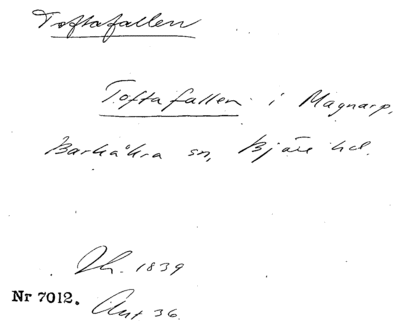 Toftafallen
Toftafallen i Magnarp,
Barkåkra sn, Bjäre hd.
1839
Nr 7012.
36.